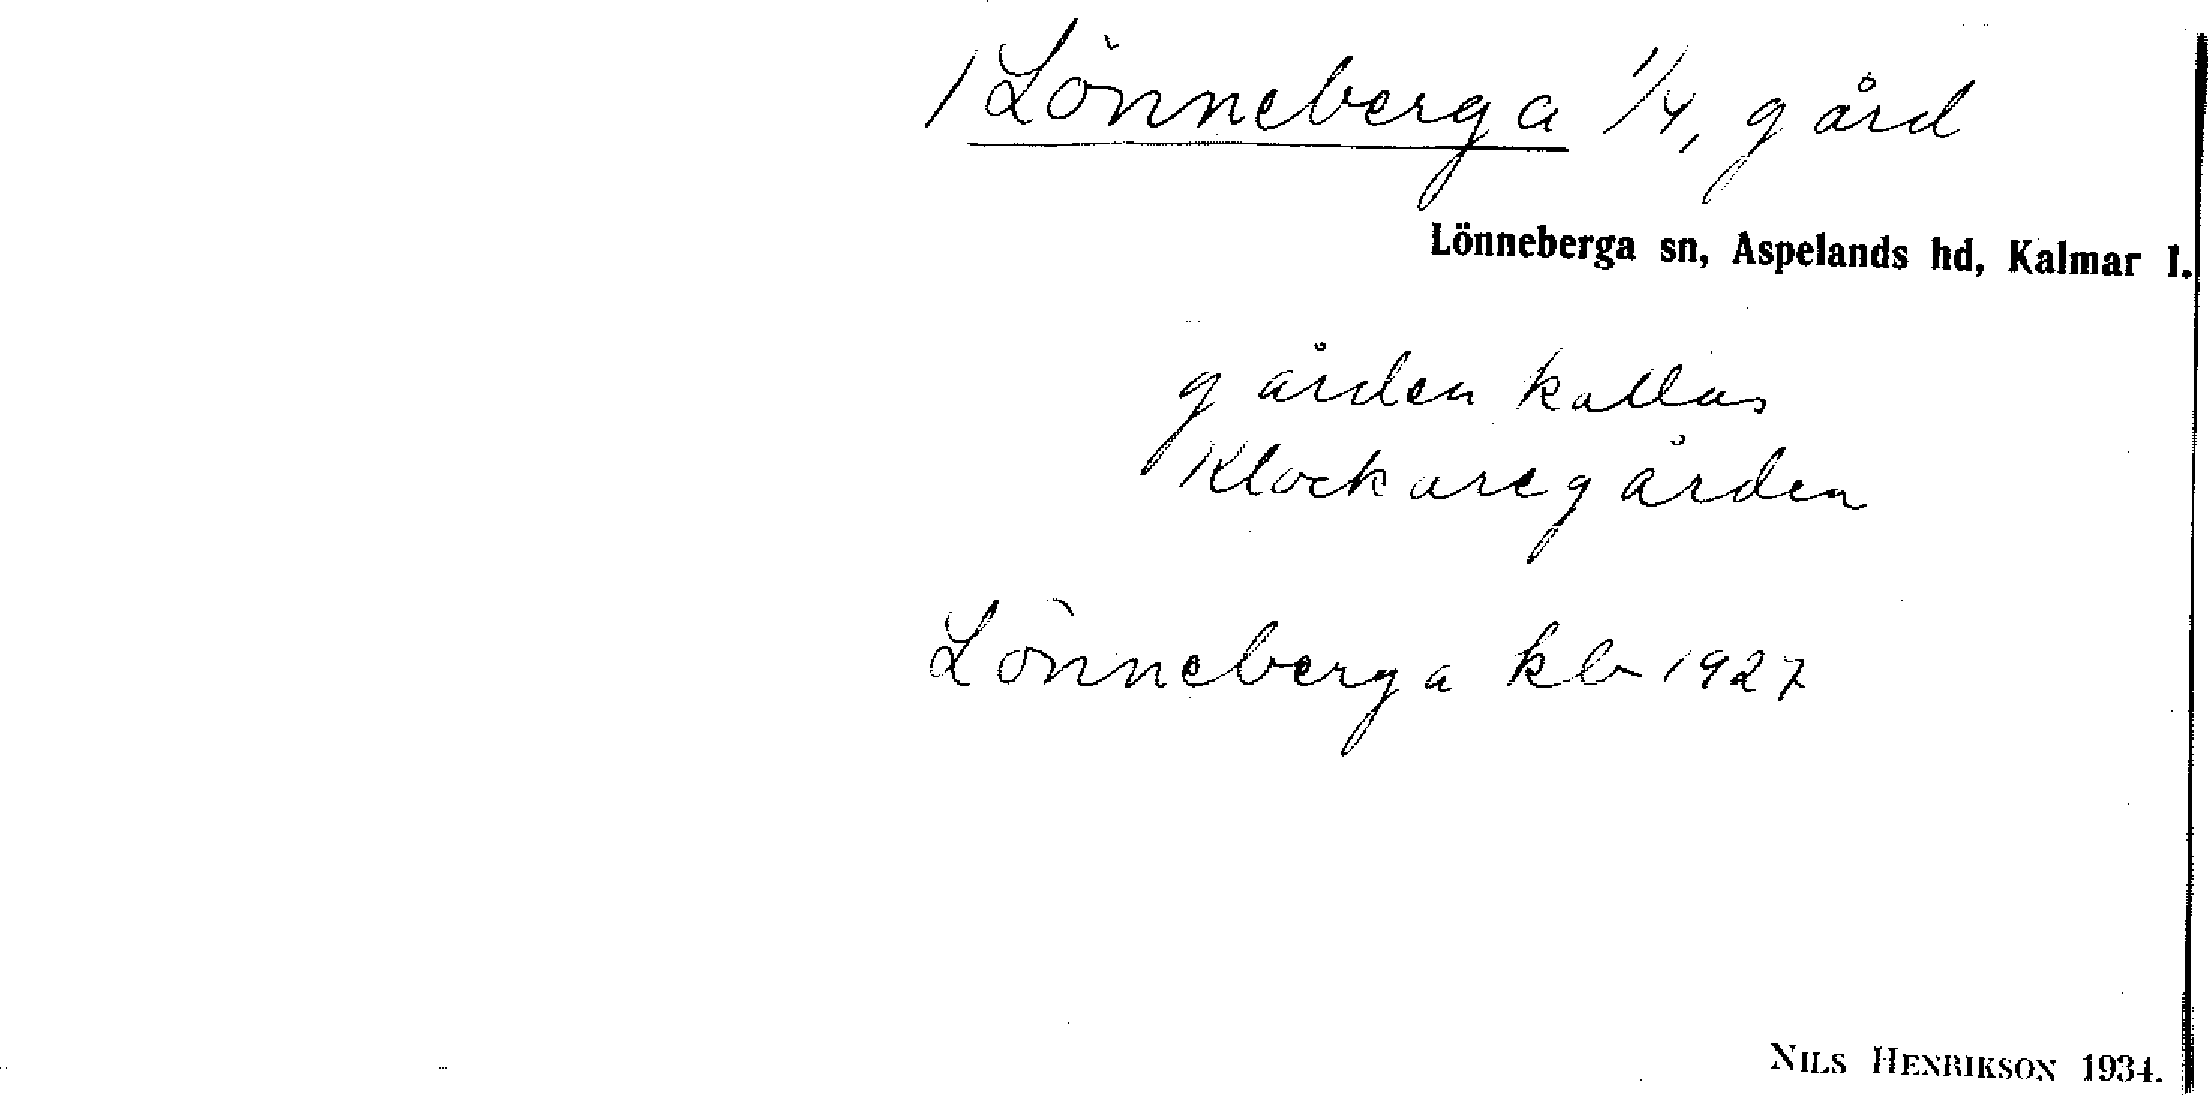 / Lönneberga 1/4, gård
Lönneberga sn, Aspelands hd, Kalmar l.
gården kallas
Klockaregården
Lönneberga klr 1927
NILS HENRIKSON 1934.